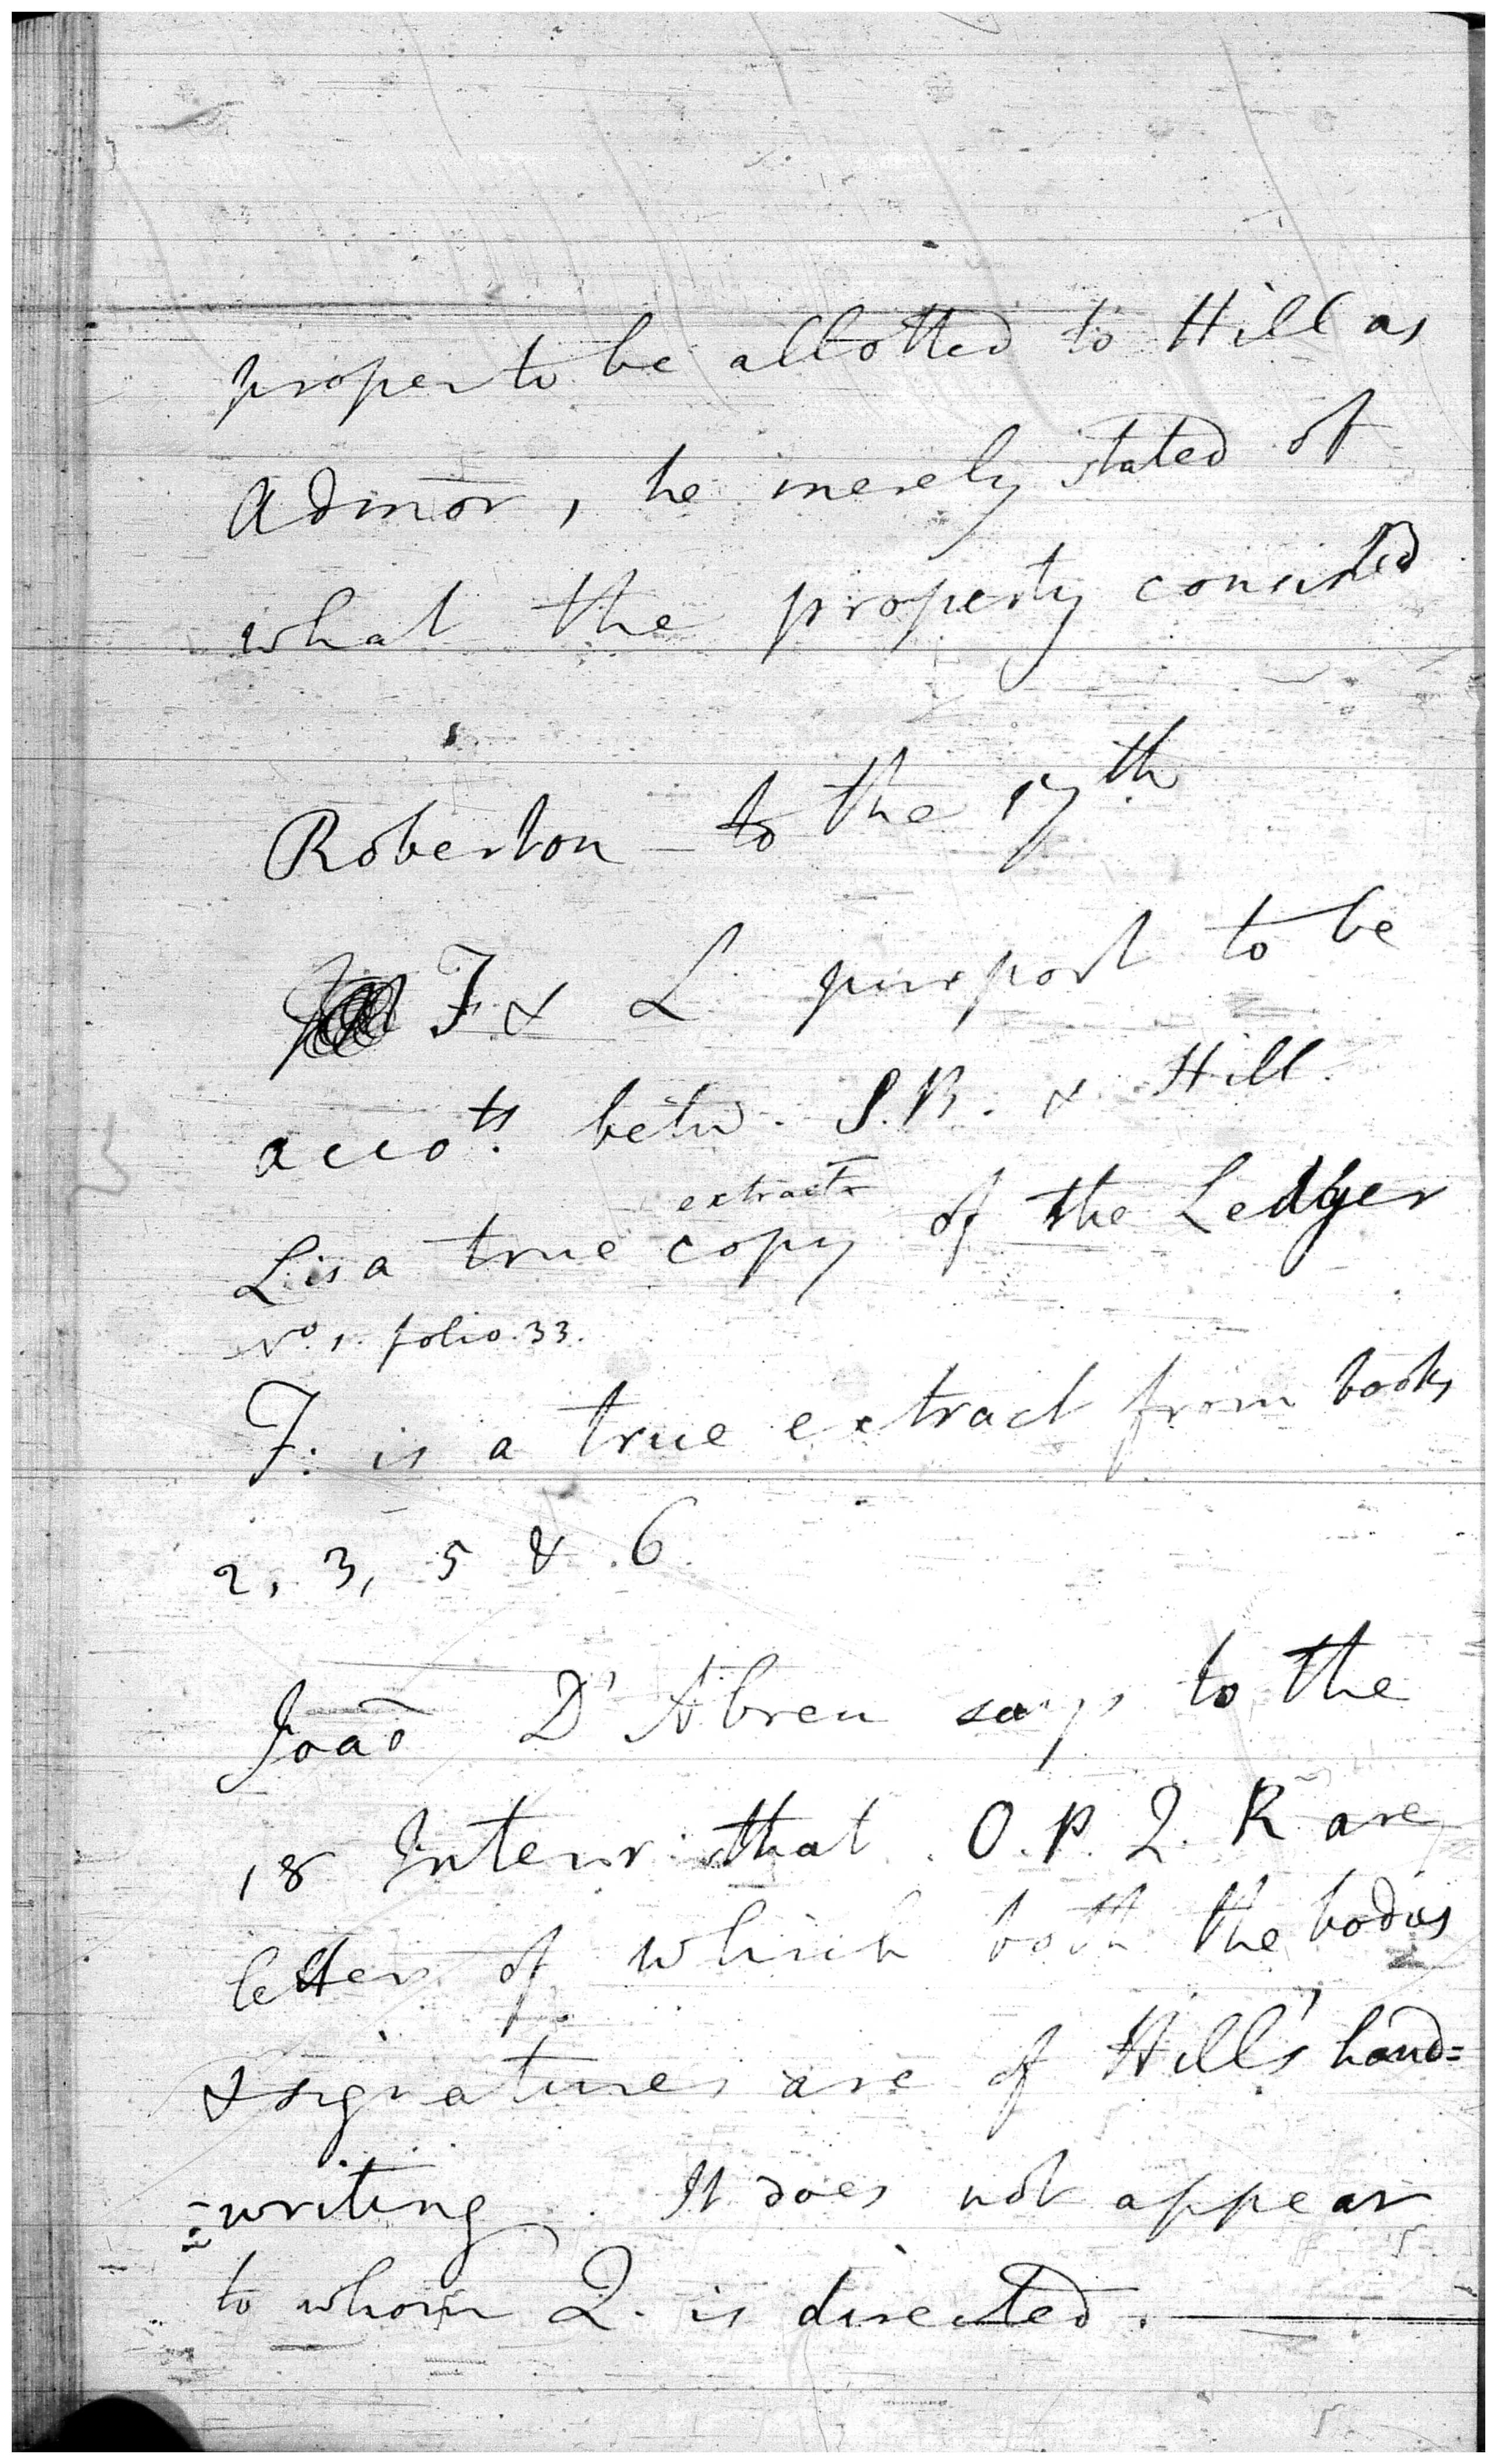 proper to be allotted to Hill as
Admor, he merely stated of
what the property consisted
Roberton – to the 17th
F & L purport to be
accots. betw. S.B. & Hill
extract
L is a true copy of the Ledger
No. 1. folio. 33.
F. is a true extract from books
2, 3, 5 & 6
Joaõ D'Abreu says to the
18 Interr that O. P. Q. R are
letters of which both the bodies
& signatures are of Hill's hand=
=writing. It does not appear
to whom Q. is directed.